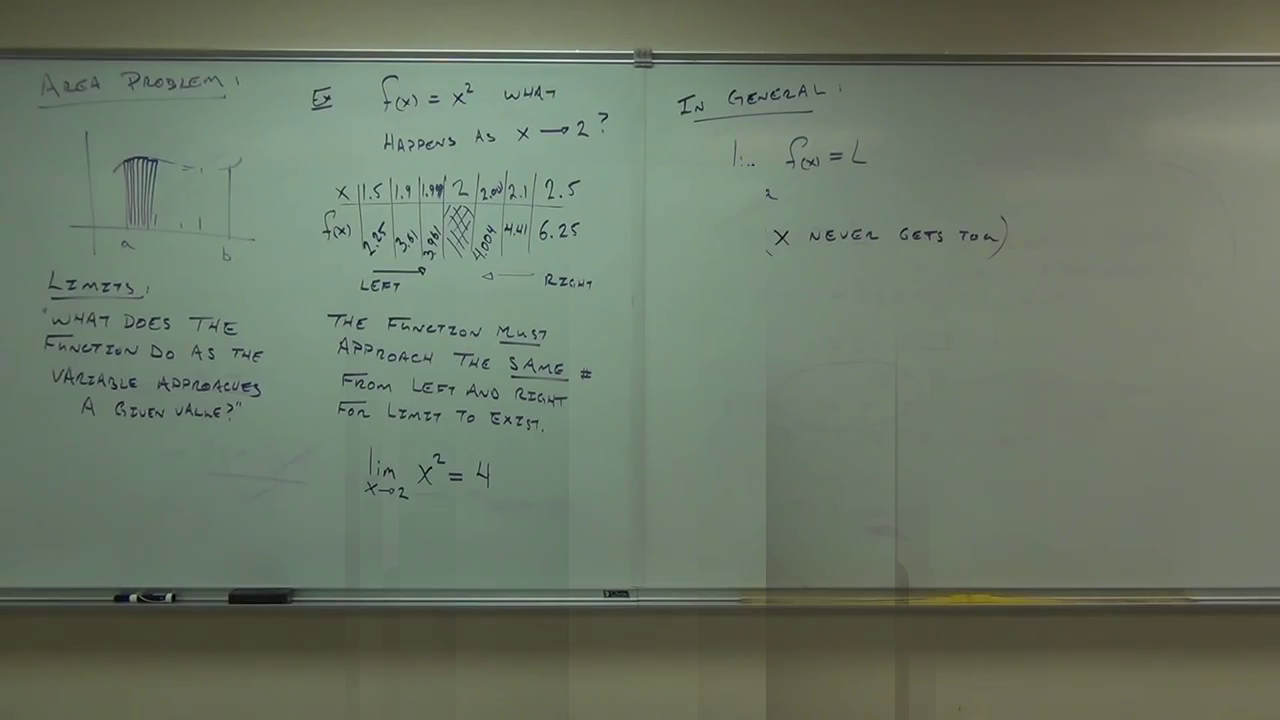 AREA PROBLEM:
a
b
LIMITS:
"WHAT DOES THE
FUNCTION DO AS THE
VARIABLE APPROACHES
A GIVEN VALUE?"
Ex f(x) = x² WHAT
HAPPENS AS X → 2?
X 1.5 1.9 1.99 2 2.001 2.1 2.5
f(x) 2.25 3.61 3.961 4.004 4.41 6.25
LEFT RIGHT
THE FUNCTION MUST
APPROACH THE SAME #
FROM LEFT AND RIGHT
FOR LIMIT TO EXIST.
lim x² = 4
x→2
IN GENERAL:
f(x) = L
(X NEVER GETS TO a)